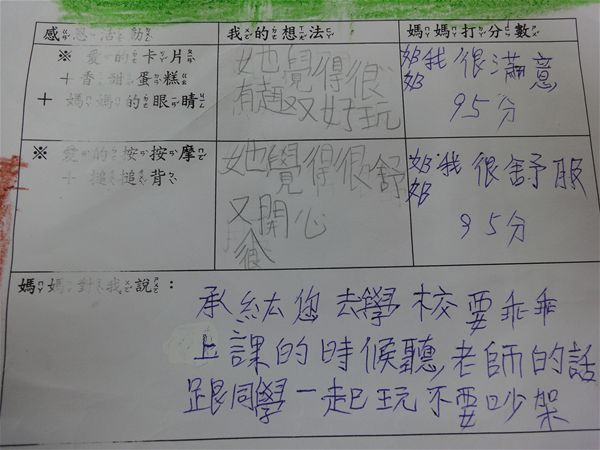 感恩活動 我的想法 媽媽打分數
※愛的卡片
＋香甜蛋糕
＋媽媽的眼睛
她覺得很
有趣又好玩
奶奶我很滿意
95分
※愛的按按摩
＋槌槌背
她覺得很舒
又開心
很
奶奶我很舒服
95分
媽媽對我說：
承紘您去學校要乖乖
上課的時候聽老師的話
跟同學一起玩不要吵架